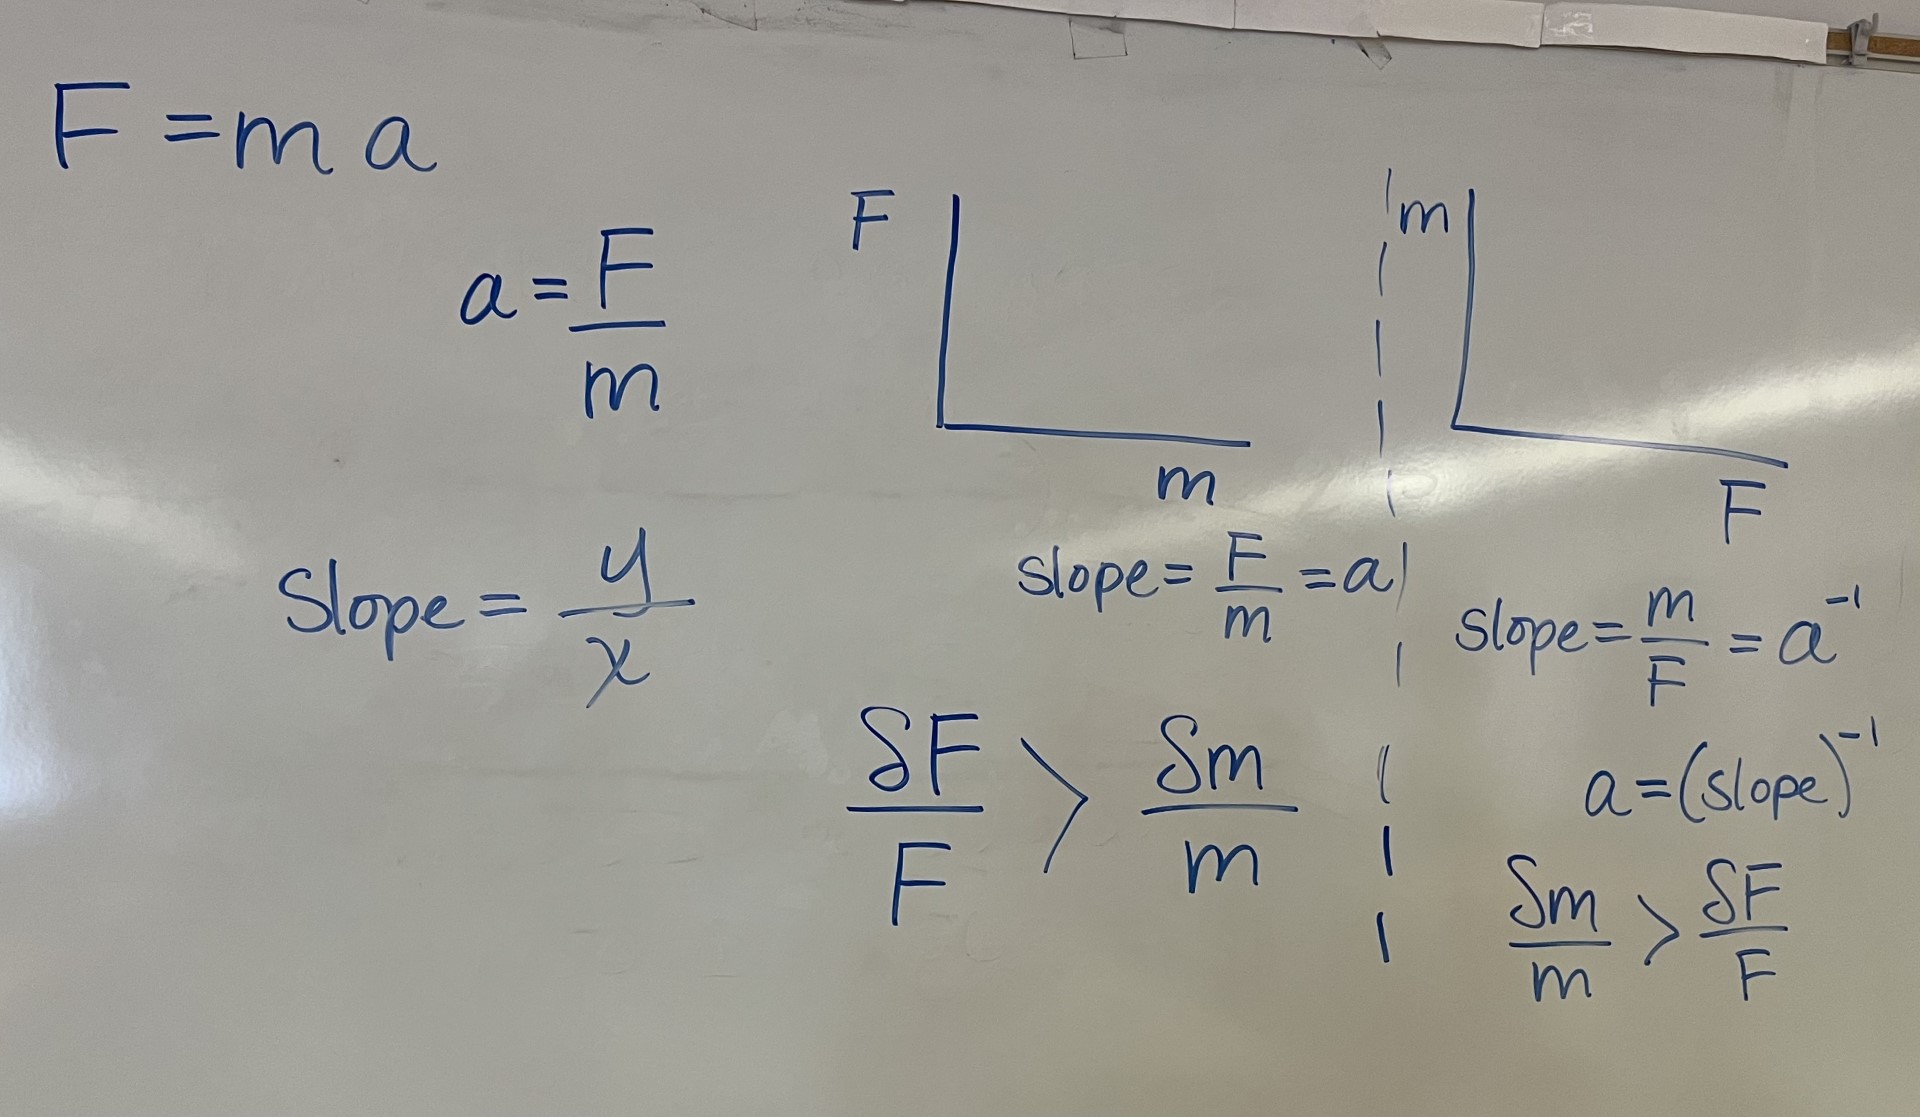 F = m a
a = F/m
Slope = y/x
F
m
slope = F/m = a
δF/F > δm/m
m
F
slope = m/F = a⁻¹
a = (slope)⁻¹
δm/m > δF/F